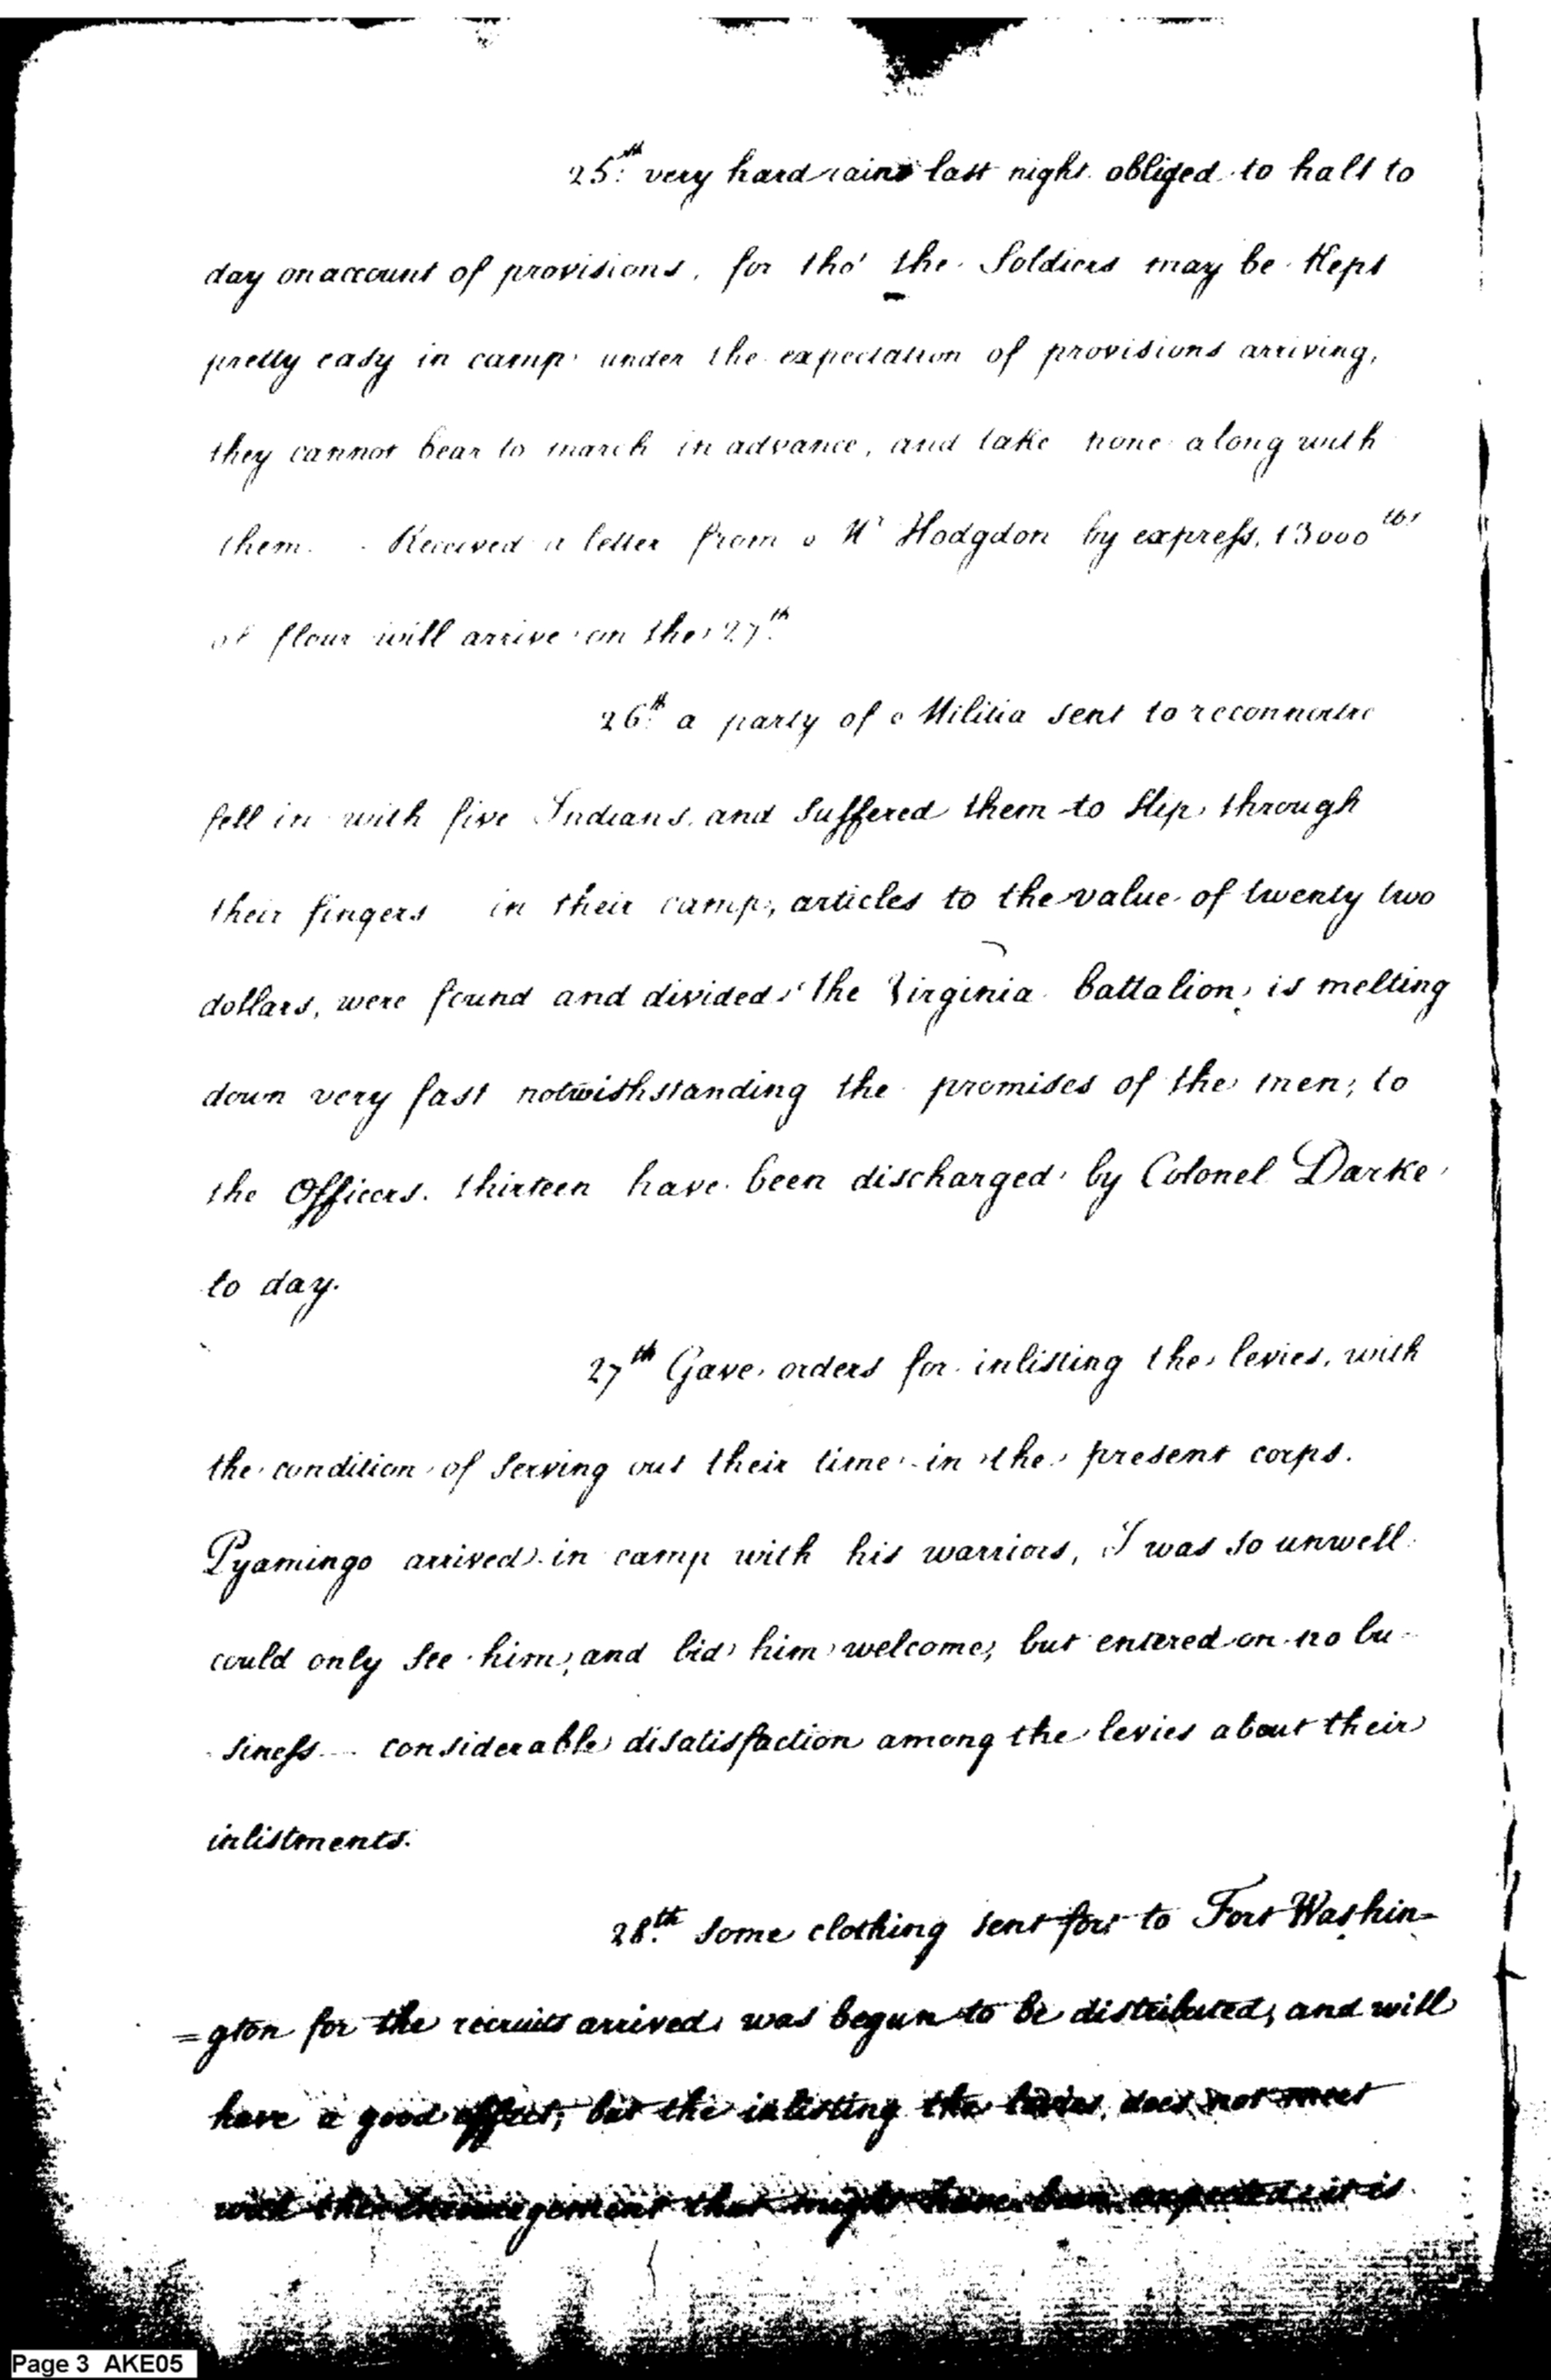 25th. very hard rains last night obliged to halt to
day on account of provisions, for tho' the Soldiers may be Kept
pretty easy in camp under the expectation of provisions arriving,
they cannot bear to march in advance, and take none along with
them. Received a letter from Mr Hodgdon by express, 13000 lbs
of flour will arrive on the 27th.
26th. a party of Militia sent to reconnoitre
fell in with five Indians, and suffered them to slip through
their fingers in their camp, articles to the value of twenty two
dollars, were found and divided, the Virginia battalion, is melting
down very fast notwithstanding the promises of the men, to
the Officers. thirteen have been discharged by Colonel Darke
to day.
27th Gave orders for inlisting the levies, with
the condition of serving out their time in the present corps.
Pyamingo arrived in camp with his warriors, I was so unwell
could only see him, and bid him welcome, but entered on no bu-
siness — considerable disatisfaction among the levies about their
inlistments.
28th. some clothing sent for to Fort Washin=
=gton for the recruits arrived, was begun to be distributed, and will
have a good effect, but the inlisting the levies, does not meet
with the encouragement that might have been expected, it is
Page 3 AKE05